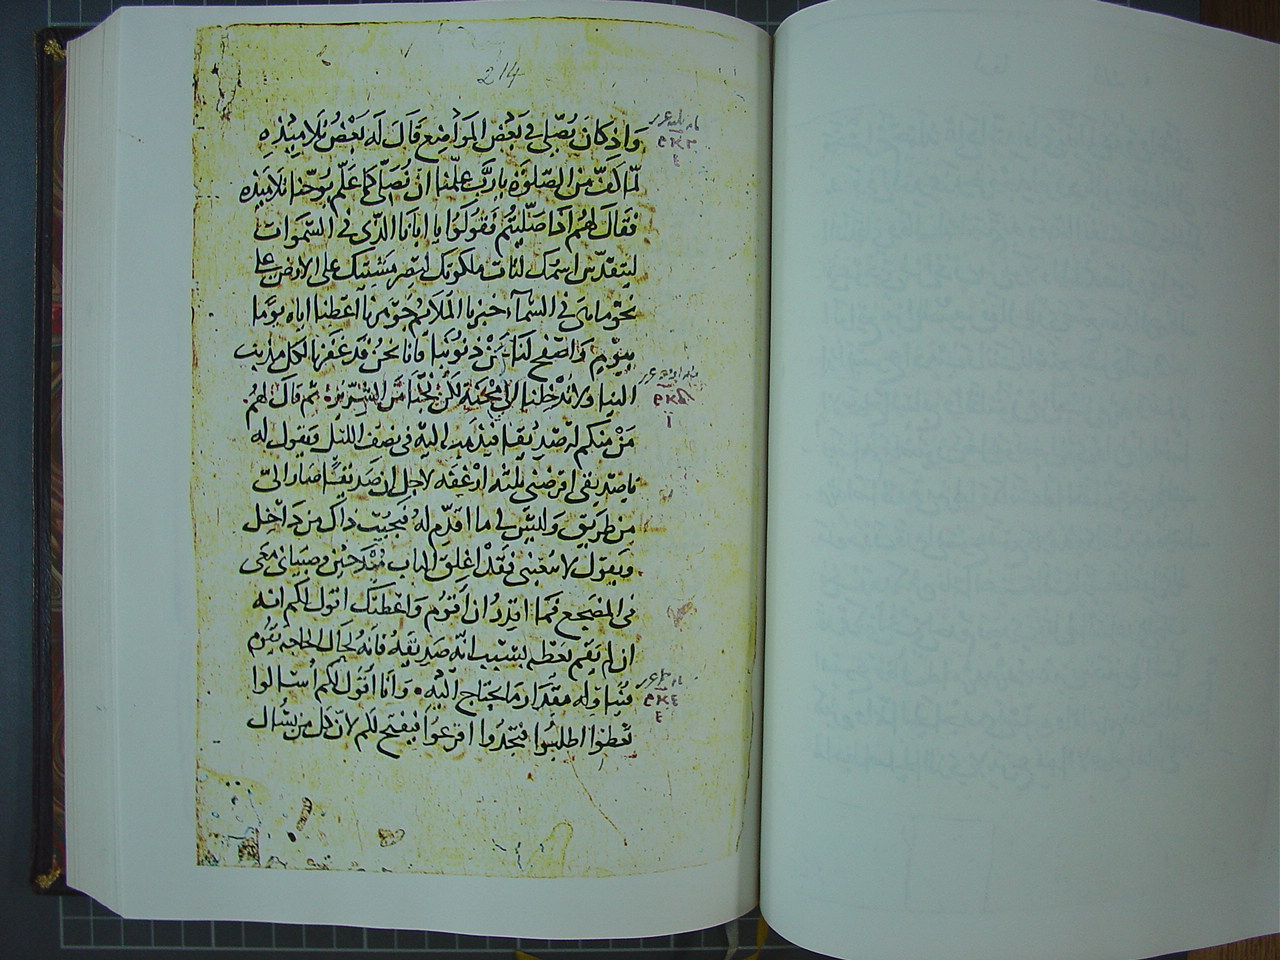 214
واذ كان يصلى فى بعض المواضع قال له بعض تلاميذه
لمّا كفّ من الصلوة يا ربّ علّمنا ان نصلّى كما علّم يوحنا تلاميذه
فقال لهم اذا صلّيتم فقولوا يا ابانا الذى فى السموات
ليتقدّس اسمك لتات ملكوتك لتصر مشيتك على الارض على
نحو ما هى فى السمآء خبزنا الملايم جوهرنا اعطنا اياه يوما
بيوم واصفح لنا عن ذنوبنا فانا نحن قد غفرنا لكل مذنب
الينا ولا تدخلنا الى محنة لكن نجّنا من الشرّير ثم قال لهم
من منكم له صديقا فيذهب اليه فى نصف الليل ويقول له
يا صديقى اقرضنى ثلثه ارغفه لاجل ان صديقًا صار الىّ
من طريق وليس لى ما اقدّم له فيجيب ذاك من داخل
ويقول لا تتعبنى فقد اغلق الباب منذ حين وصبيانى معى
فى المضجع فما اقدر ان اقوم واعطيك اقول لكم انه
ان لم يقم يعطه بسبب انّه صديقه فانه لحال لجاجه يقوم
فيناوله مقدار ما يحتاج اليه وانا اقول لكم اسالوا
تعطوا اطلبوا فتجدوا اقرعوا فيفتح لكم لانّ كل من يسال